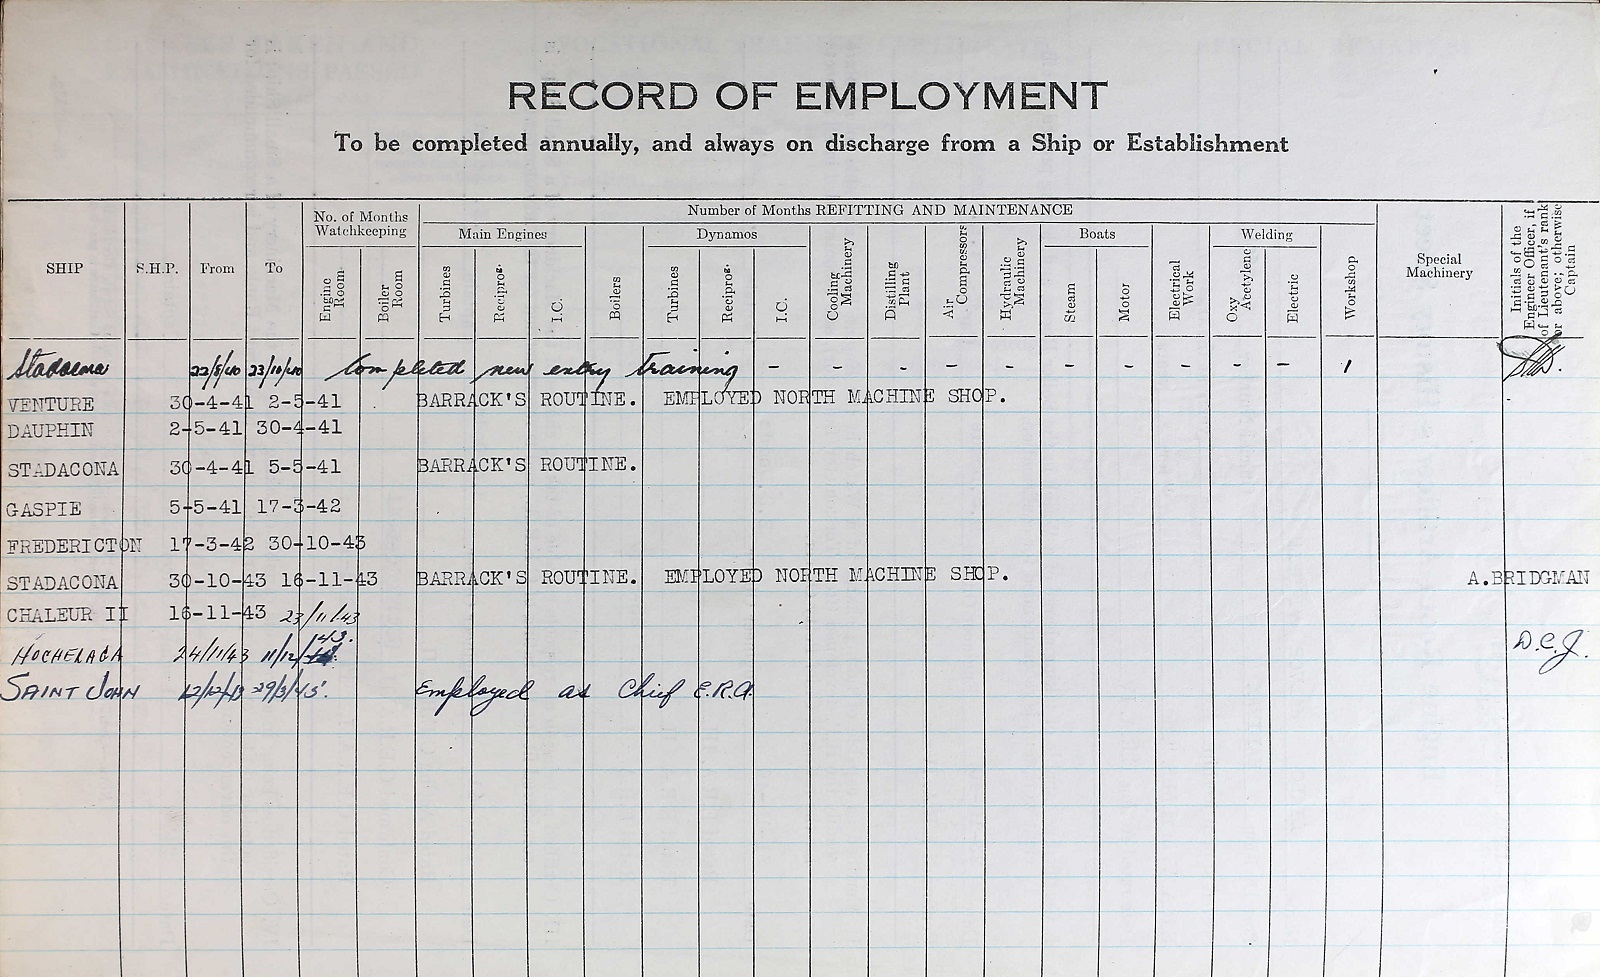 RECORD OF EMPLOYMENT
To be completed annually, and always on discharge from a Ship or Establishment
SHIP S.H.P. From To No. of Months Watchkeeping Engine Room Boiler Room
Number of Months REFITTING AND MAINTENANCE
Main Engines Turbines Reciprog. I.C. Boilers Dynamos Turbines Reciprog. I.C. Cooling Machinery Distilling Plant Air Compressors Hydraulic Machinery Boats Steam Motor Electrical Work Welding Oxy Acetylene Electric Workshop
Special Machinery
Initials of the Engineer Officer, if of Lieutenant's rank or above; otherwise Captain
Stadacona 22/8/40 23/10/40 Completed new entry training - - - - - - - - - - 1
VENTURE 30-4-41 2-5-41 BARRACK'S ROUTINE. EMPLOYED NORTH MACHINE SHOP.
DAUPHIN 2-5-41 30-4-41
STADACONA 30-4-41 5-5-41 BARRACK'S ROUTINE.
GASPIE 5-5-41 17-3-42
FREDERICTON 17-3-42 30-10-43
STADACONA 30-10-43 16-11-43 BARRACK'S ROUTINE. EMPLOYED NORTH MACHINE SHOP. A.BRIDGMAN
CHALEUR II 16-11-43 23/11/43
HOCHELAGA 24/11/43 11/12/43. D.C.J.
SAINT JOHN 12/12/43 29/3/45. Employed as Chief E.R.A.